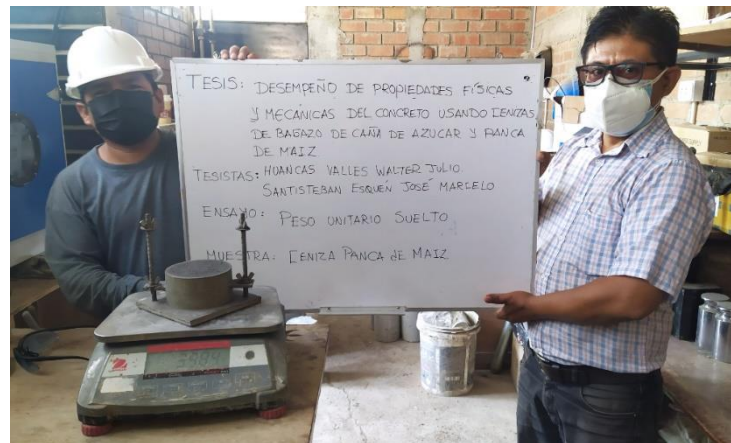 TESIS: DESEMPEÑO DE PROPIEDADES FÍSICAS
Y MECÁNICAS DEL CONCRETO USANDO CENIZAS
DE BAGAZO DE CAÑA DE AZUCAR Y PANCA
DE MAIZ
TESISTAS: HUANCAS VALLES WALTER JULIO
SANTISTEBAN ESQUEÑ JOSÉ MARCELO
ENSAYO: PESO UNITARIO SUELTO
MUESTRA: CENIZA PANCA DE MAIZ